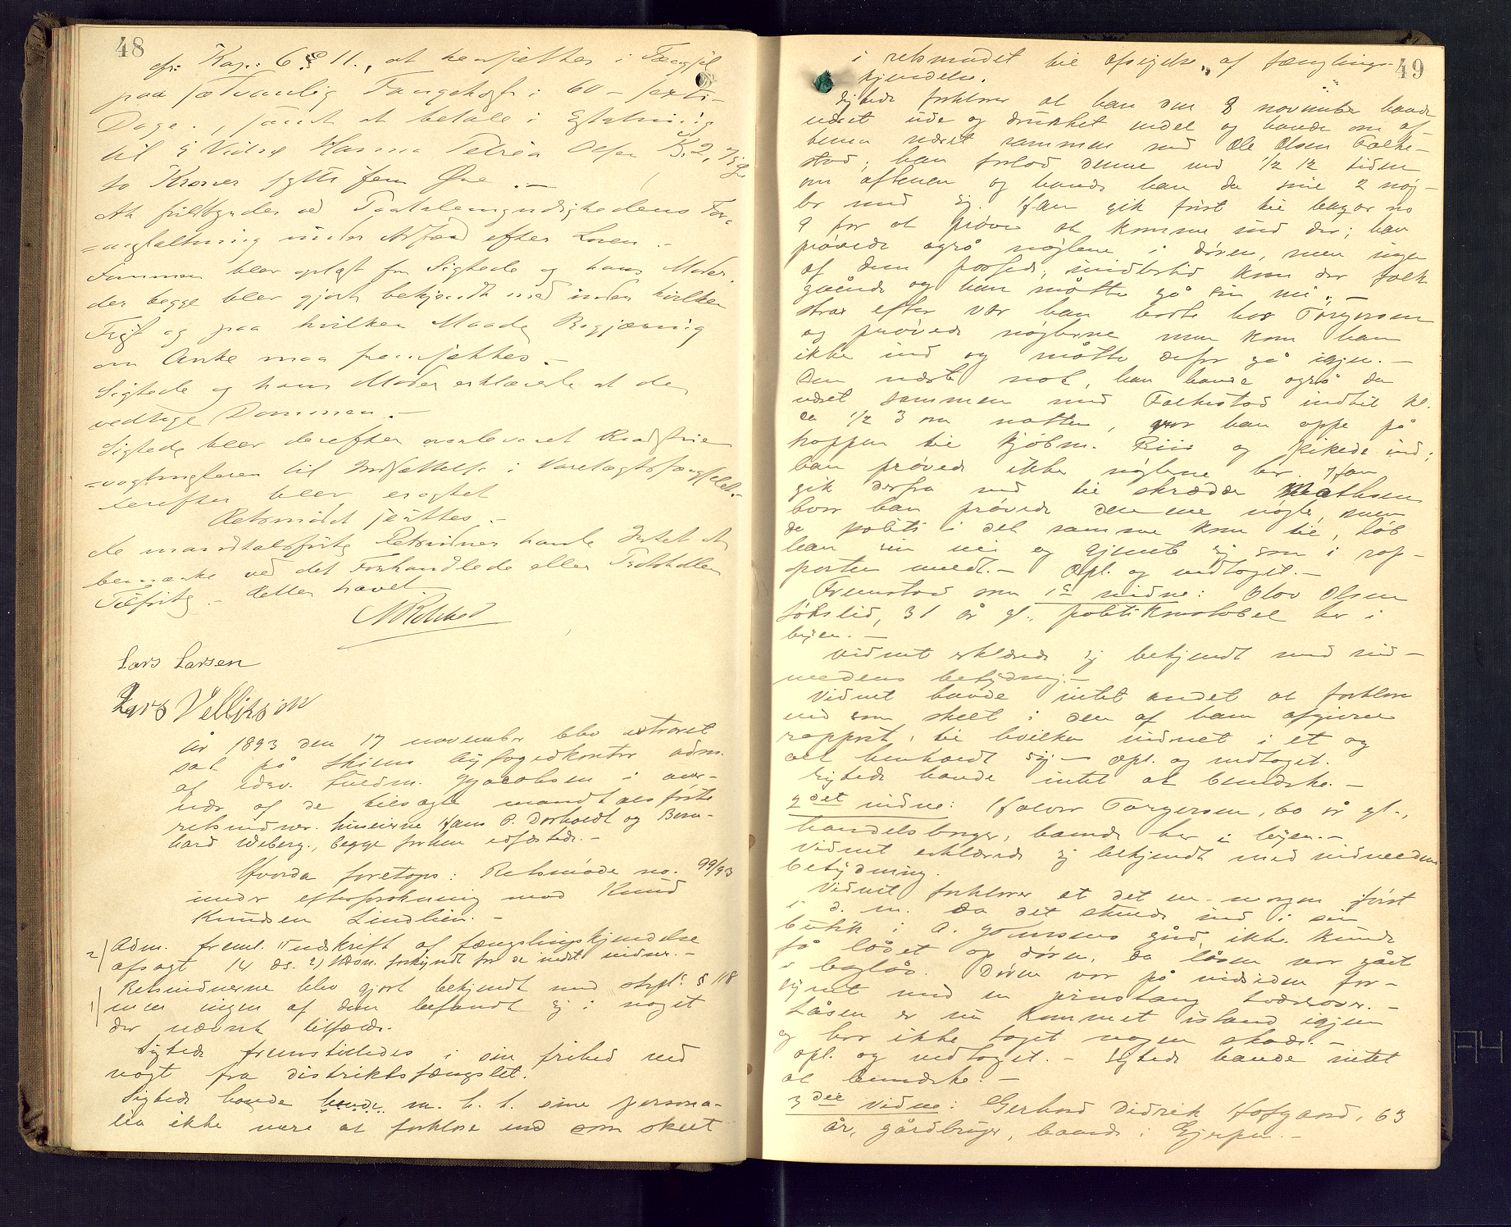 48
cfr. Kap. 6 § 11., at hensættes i Fængsel
paa sædvanlig Fangekost i 60 - sexti -
Dage, samt at betale i Erstatning
til Vidne Karen Petrea Olsen K. 2,
to Kroner fytti fem Øre. —
At fuldbyrdes ved Paatalemyndighedens For-
=anstaltning under Adfærd efter Loven. —
Dommen blev oplæst for Sigtede og hans Moder,
der begge blev gjort bekjendt med inden hvilken
Frist og paa hvilken Maade Begjæring
om Anke maa fremsættes. —
Sigtede og hans Moder erklærede at de
vedtoge Dommen. —
Sigtede blev derefter overleveret Raadstue-
=vagtmesteren til Indsættelse i Varetægtsfængslet. —
derefter blev
Retsmødet sluttet. —
De mandtalsførte Retsvidner havde Intet at
bemærke ved det Forhandlede eller Protokollens
Tilførsel. — Retten hævet.
Lars Larsen
Lars
År 1893 den 17 november blev extraret
sat på Skiens byfogedkontor adm.
af edsv. fuldm. Jacobsen i over-
vær af de tilsagte mandtalsførte
retsvidner. huseierne Hans P. Dorholdt og Bern-
hard Wiberg, begge forhen edfæstede. —
Hvorda foretoges: Retsmøde no. 99/93
under efterforskning mod Knud
Knudsen Lindlien. —
2) Adm. freml. 1) udskrift af fængslingskjendelse
afsagt 14 ds. 2) forkyndt for de mødt vidner. —
Retsvidnerne blev gjort bekjendt med strpl. § 118
1) men ingen af dem befandt sig i noget
der nævnt tilfælde.
Sigtede fremstilledes i sin frihed med
vagt fra distriktsfængslet.
Sigtede havde m. h. t. sine persona-
lia ikke mere at forklare end som skeet
49
i retsmødet til afsigelse af fænglings-
kjendelse.
Sigtede forklarer at han den 8 november havde
været ude og drukket endel og havde om af-
tenen været sammen med Ole Olsen Falke-
stad; han forlod denne ved 1/2 12 tiden
om aftenen og havde han da sine 2 nøg-
ler med sig. Han gik først til bager no
9 for at prøve at komme ind der; han
prøvede også nøglene i døren, men ingen
af dem passede, imidlertid kom der folk
gående og han måtte gå sin vei. —
strax efter var han borte hos Torgersen
og prøvede nøglerne men kom han
ikke ind og måtte derfor gå igjen. —
Den næste nat, han havde også da
været sammen med Falkestad indtil kl.
ca 1/2 3 om natten, var han oppe på
trappen til kjøbm. Riis og kikede ind;
han prøvede ikke nøglene her. Han
gik derfra ned til skrædder Mathsen
hvor han prøvede denne nøgle, men
da politi i det samme kom til, løb
han sin vei og gjemte sig som i rap-
porten meldt. — Opl. og vedtaget. —
Fremstod som 1ste vidne: Olav Olsen
Jøkslid, 31 år gl., politikonstabel her i
byen. —
Vidnet erklærede sig bekjendt med vid-
needens betydning. —
Vidnet havde intet andet at forklare
end som skeet i den af ham afgivne
rapport, til hvilken vidnet i et og
alt henholdt sig — Opl. og vedtaget.
Sigtede havde intet at bemærke. —
2det vidne: Halvor Torgersen, 60 år gl.,
handelsborger, boende her i byen. —
Vidnet erklærede sig bekjendt med vidneedens
betydning.
Vidnet forklarer at det en morgen først
i d. m. da det skulde ind i sin
butik i A. gård, ikke kunde
få låset op døren, da låsen var gået
i baglås. Døren var på indsiden for-
synet med en jernstang tversover. —
Låsen er nu kommet istand igjen
og har ikke taget nogen skade. —
opl. og vedtaget. — Sigtede havde intet
at bemærke. —
3die vidne: Gerhard Didrik Hofgaard, 63
år, gårdbruger, boende i Gjerpen. —